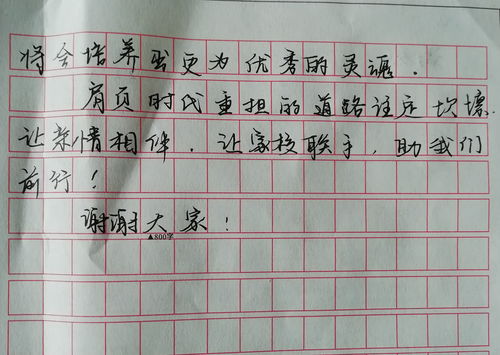 将会培养出更为优秀的灵魂.
肩负时代重担的道路注定坎壈
让亲情相伴.让家校联手,助我们
前行!
谢谢大家!
▲800字